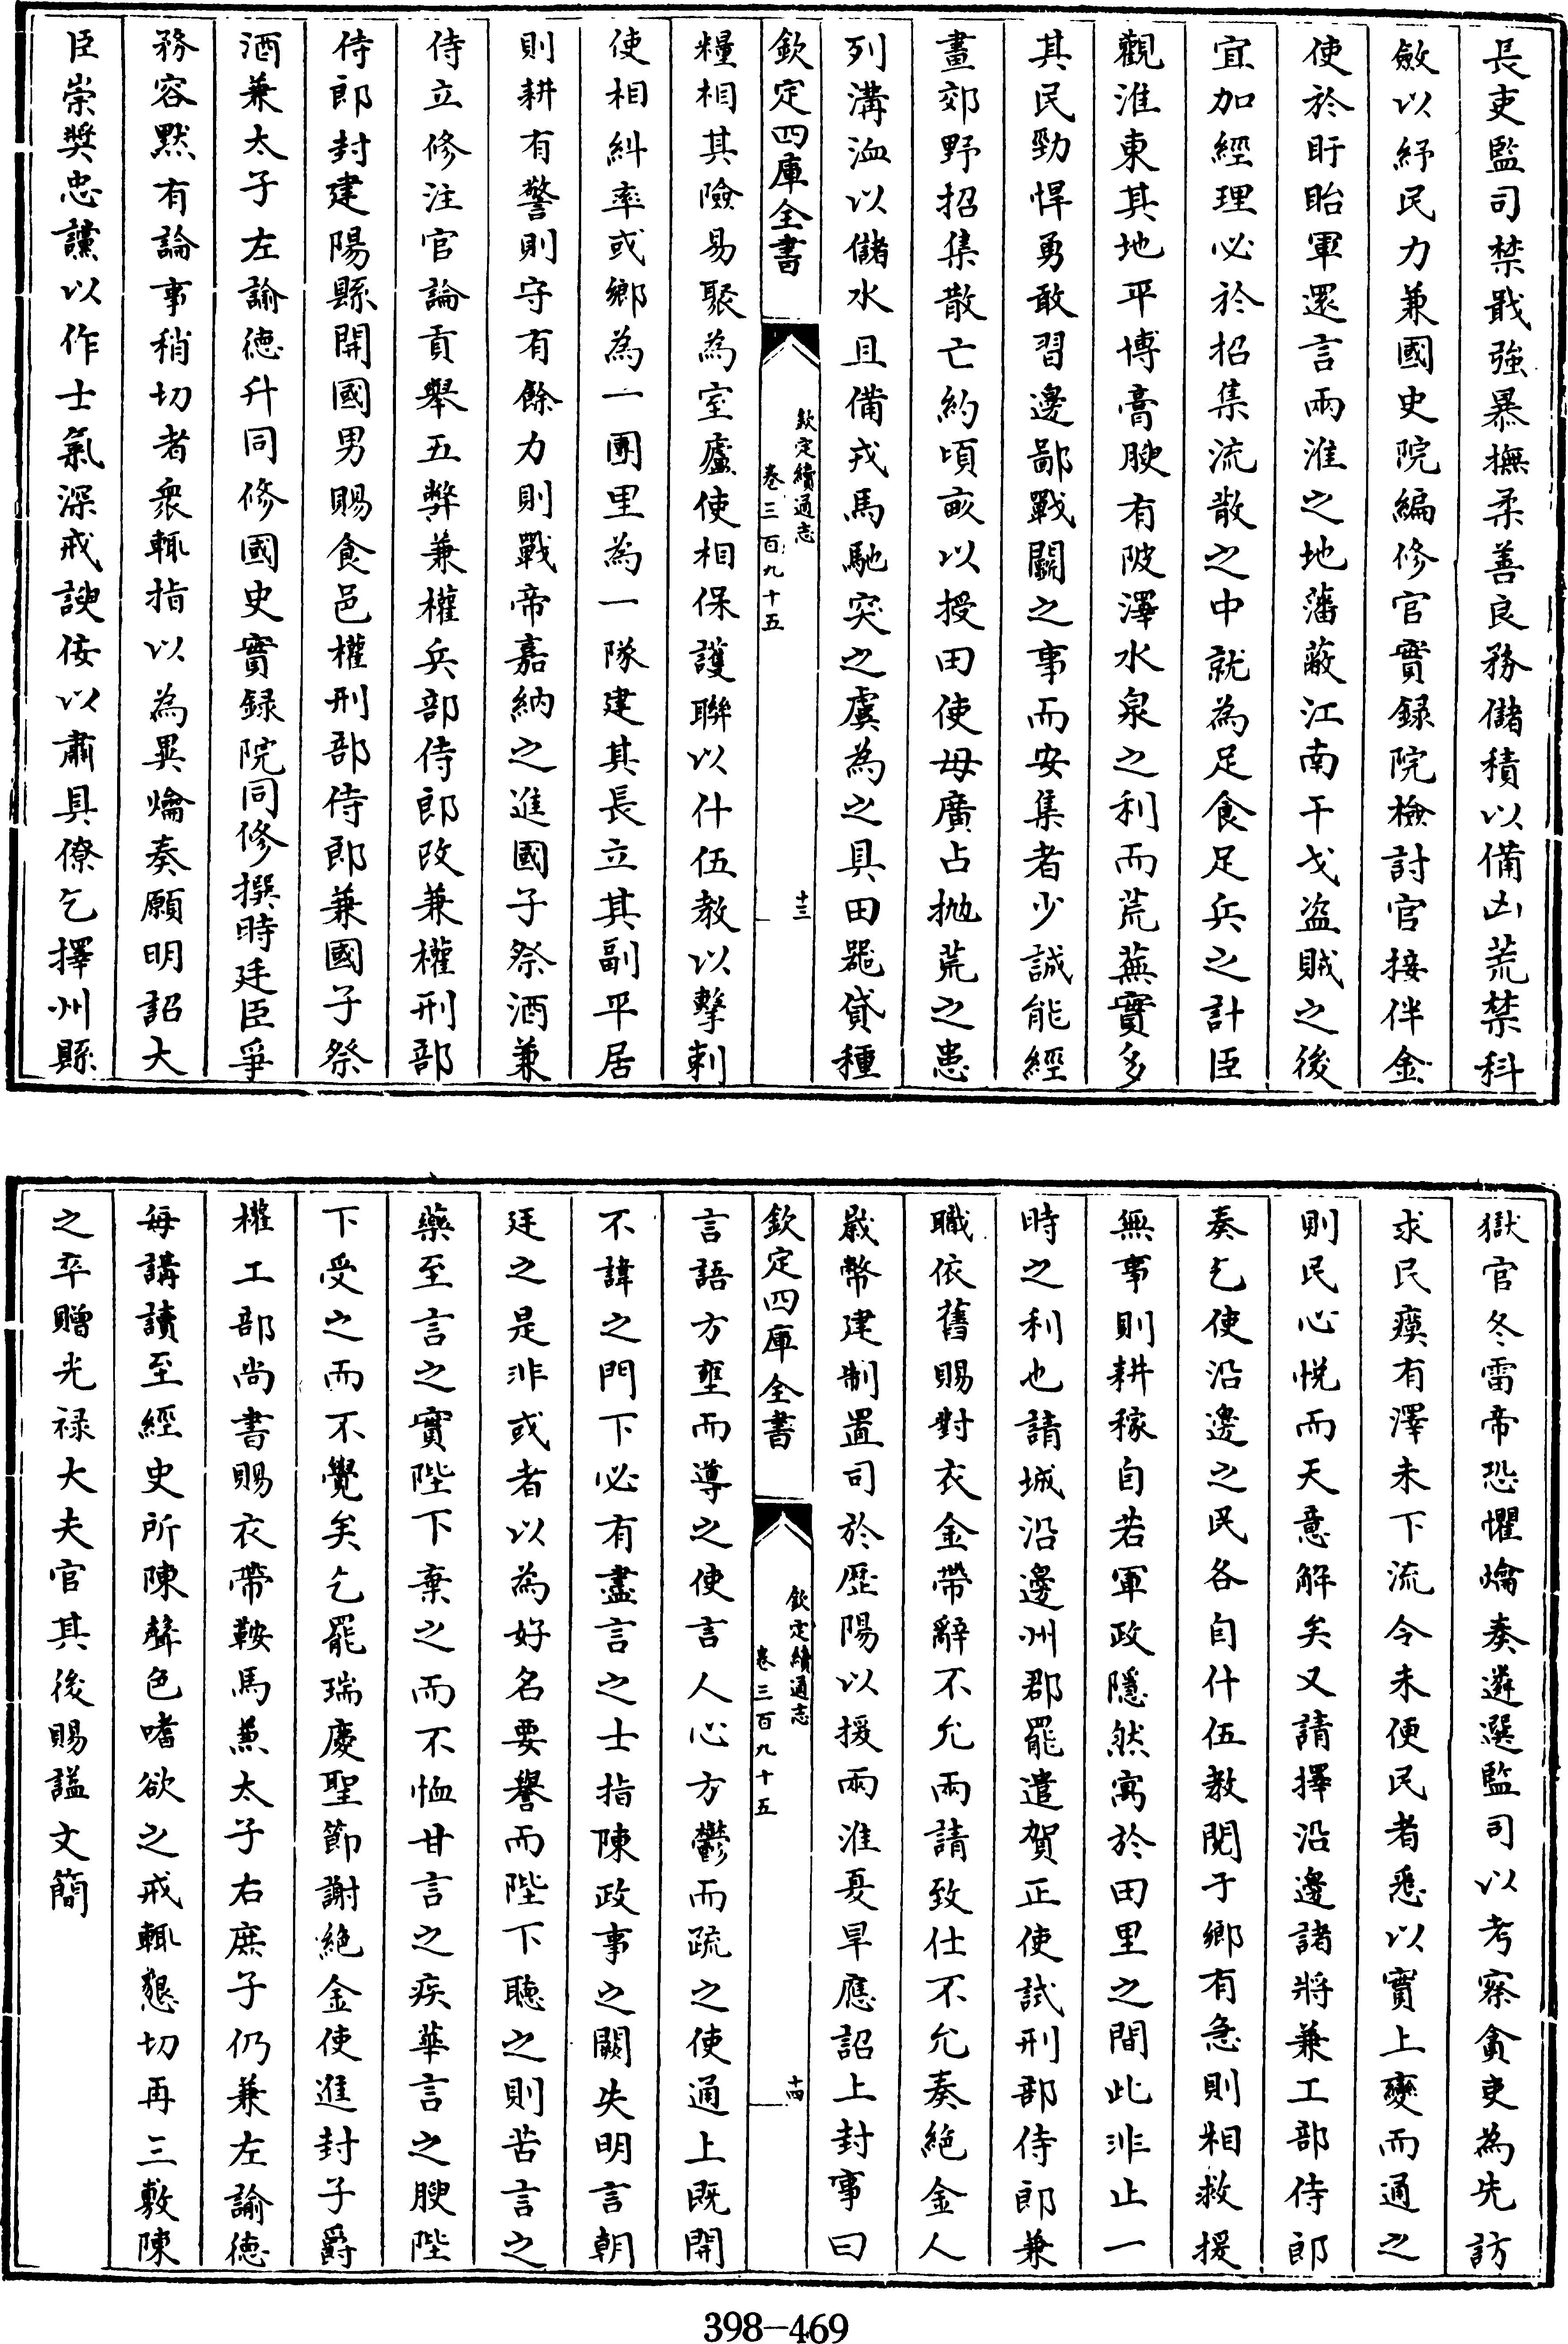 長吏監司禁戢強暴撫柔善良務儲積以備凶荒禁科
斂以紓民力兼國史院編修官實録院檢討官接伴金
使於盱眙軍還言兩淮之地藩蔽江南干戈盗賊之後
宜加經理必於招集流散之中就為足食足兵之計臣
觀淮東其地平博膏腴有陂澤水泉之利而荒蕪實多
其民勁悍勇敢習邊鄙戰鬭之事而安集者少誠能經
畫郊野招集散亡約頃畝以授田使毋廣占抛荒之患
列溝洫以儲水且備戎馬馳突之虞為之具田器貸種
欽定四庫全書
欽定續通志
卷三百九十五
十三
糧相其險易聚為室廬使相保護聯以什伍教以擊刺
使相糾率或鄉為一團里為一隊建其長立其副平居
則耕有警則守有餘力則戰帝嘉納之進國子祭酒兼
侍立修注官論貢舉五弊兼權兵部侍郎改兼權刑部
侍郎封建陽縣開國男賜食邑權刑部侍郎兼國子祭
酒兼太子左諭德升同修國史實録院同修撰時廷臣爭
務容黙有論事稍切者衆輒指以為異爚奏願明詔大
臣崇奬忠讜以作士氣深戒諛佞以肅具僚乞擇州縣
獄官冬雷帝恐懼爚奏遴選監司以考察貪吏為先訪
求民瘼有澤未下流令未便民者悉以實上變而通之
則民心悦而天意解矣又請擇沿邊諸將兼工部侍郎
奏乞使沿邊之民各自什伍教閲于鄉有急則相救援
無事則耕稼自若軍政隱然寓於田里之間此非止一
時之利也請城沿邊州郡罷遣賀正使試刑部侍郎兼
職依舊賜對衣金帶辭不允兩請致仕不允奏絶金人
歲幣建制置司於歴陽以援兩淮夏旱應詔上封事曰
欽定四庫全書
欽定續通志
卷三百九十五
十四
言語方壅而導之使言人心方鬱而疏之使通上既開
不諱之門下必有盡言之士指陳政事之闕失明言朝
廷之是非或者以為好名要譽而陛下聽之則苦言之
藥至言之實陛下棄之而不恤甘言之疾華言之腴陛
下受之而不覺矣乞罷瑞慶聖節謝絶金使進封子爵
權工部尚書賜衣帶鞍馬兼太子右庶子仍兼左諭徳
每講讀至經史所陳聲色嗜欲之戒輒懇切再三敷陳
之卒贈光禄大夫官其後賜諡文簡
398-469